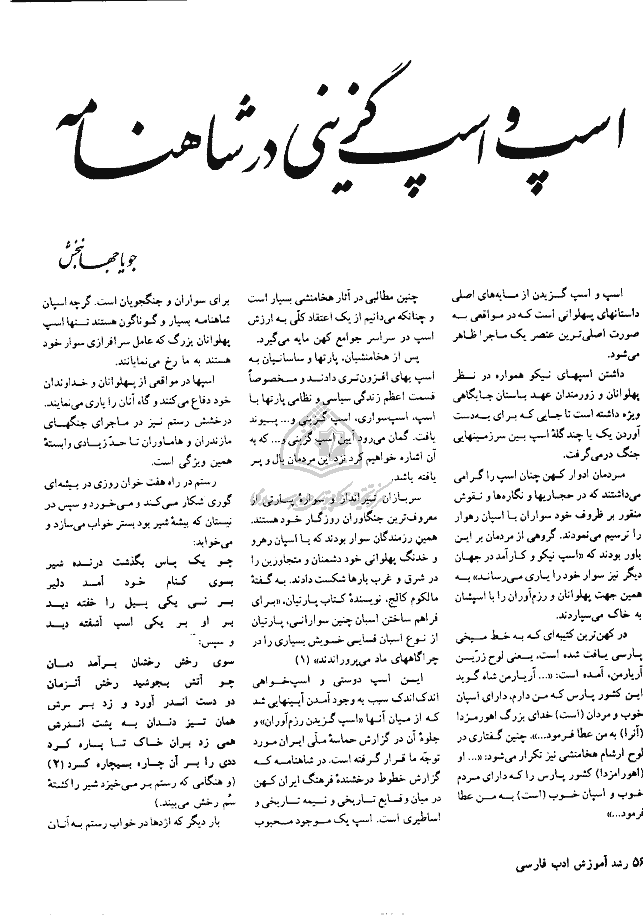 اسپ و اسپ گزینی در شاهنامه
جویا جهانبخش
اسپ و اسپ گزیدن از مایه‌های اصلی
داستانهای پهلوانی است که در مواقعی به
صورت اصلی‌ترین عنصر یک ماجرا ظاهر
می‌شود.
داشتن اسپهای نیکو همواره در نظر
پهلوانان و زورمندان عهد باستان جایگاهی
ویژه داشته است تا جایی که برای به‌دست
آوردن یک یا چند گلهٔ اسپ بین سرزمینهایی
جنگ درمی‌گرفت.
مردمان ادوار کهن چنان اسپ را گرامی
می‌داشتند که در حجاریها و نگاره‌ها و نقوش
منقور بر ظروف خود سواران با اسپان رهوار
را ترسیم می‌نمودند. گروهی از مردمان بر این
باور بودند که «اسپ نیکو و کارآمد در جهان
دیگر نیز سوار خود را یاری می‌رساند» به
همین جهت پهلوانان و رزم‌آوران را با اسپشان
به خاک می‌سپاردند.
در کهن‌ترین کتیبه‌ای که به خط میخی
پارسی یافت شده است، یعنی لوح زرّین
آریارمن، آمده است: «... آریارمن شاه گوید
این کشور پارس که من دارم، دارای اسپان
خوب و مردان (است) خدای بزرگ اهورمزدا
(آنرا) به من عطا فرمود...». چنین گفتاری در
لوح ارشام هخامنشی نیز تکرار می‌شود: «... او
(اهورامزدا) کشور پارس را که دارای مردم
خوب و اسپان خوب (است) به من عطا
فرمود...»
چنین مطالبی در آثار هخامنشی بسیار است
و چنانکه می‌دانیم از یک اعتقاد کلّی به ارزش
اسپ در سراسر جوامع کهن مایه می‌گیرد.
پس از هخامنشیان، پارتها و ساسانیان به
اسپ بهای افزون‌تری دادند و مخصوصاً
قسمت اعظم زندگی سیاسی و نظامی پارتها با
اسپ، اسپ‌سواری، اسپ گزینی و... پیوند
یافت. گمان می‌رود آیین اسپ گزینی و... که به
آن اشاره خواهیم کرد نزد این مردمان بال و پر
یافته باشد.
سربازان تیرانداز و سوارهٔ پارتی از
معروف‌ترین جنگاوران روزگار خود هستند.
همین رزمندگان سوار بودند که با اسپان رهرو
و خدنگ پهلوانی خود دشمنان و متجاوزین را
در شرق و غرب بارها شکست دادند. به گفتهٔ
مالکوم کالج، نویسندهٔ کتاب پارتیان، «برای
فراهم ساختن اسبان چنین سوارانی، پارتیان
از نوع اسبان فسایی خویش بسیاری را در
چراگاههای ماد می‌پروراندند» (۱)
ایـن اسپ دوستی و اسپ‌خواهی
اندک‌اندک سبب به وجود آمدن آیینهایی شد
که از میان آنها «اسپ گزیدن رزم‌آوران» و
جلوهٔ آن در گزارش حماسهٔ ملّی ایران مورد
توجّه ما قرار گرفته است. در شاهنامه که
گزارش خطوط درخشندهٔ فرهنگ ایران کهن
در میان وقایع تاریخی و نیمه تاریخی و
اساطیری است، اسپ یک موجود محبوب
برای سواران و جنگجویان است. گرچه اسپان
شاهنامه بسیار و گوناگون هستند تنها اسپ
پهلوانان بزرگ که عامل سرافرازی سوار خود
هستند به ما رخ می‌نمایانند.
اسپها در مواقعی از پهلوانان و خداوندان
خود دفاع می‌کنند و گاه آنان را یاری می‌نمایند.
درخشش رستم نیز در ماجرای جنگهای
مازندران و هاماوران تا حدّ زیادی وابستهٔ
همین ویژگی است.
رستم در راه هفت خوان روزی در بیشه‌ای
گوری شکار می‌کند و می‌خورد و سپس در
نیستان که بیشهٔ شیر بود بستر خواب می‌سازد و
می‌خوابد:
چو یک پاس بگذشت درنده شیر
بسوی کنام خود آمد دلیر
بر نی یکی پیل را خفته دید
بر او بر یکی اسپ آشفته دید
و سپس:
سوی رخش رخشان برآمد دمان
چو آتش بجوشید رخش آنزمان
دو دست اندر آورد و زد بر سرش
همان تیز دندان به پشت اندرش
همی زد بران خاک تا پاره کرد
ددی را بر آن چاره بیچاره کرد (۲)
(و هنگامی که رستم بر می‌خیزد شیر را کشتهٔ
سُم رخش می‌بیند.)
بار دیگر که اژدها در خواب رستم به آنان
۵۶ رشد آموزش ادب فارسی